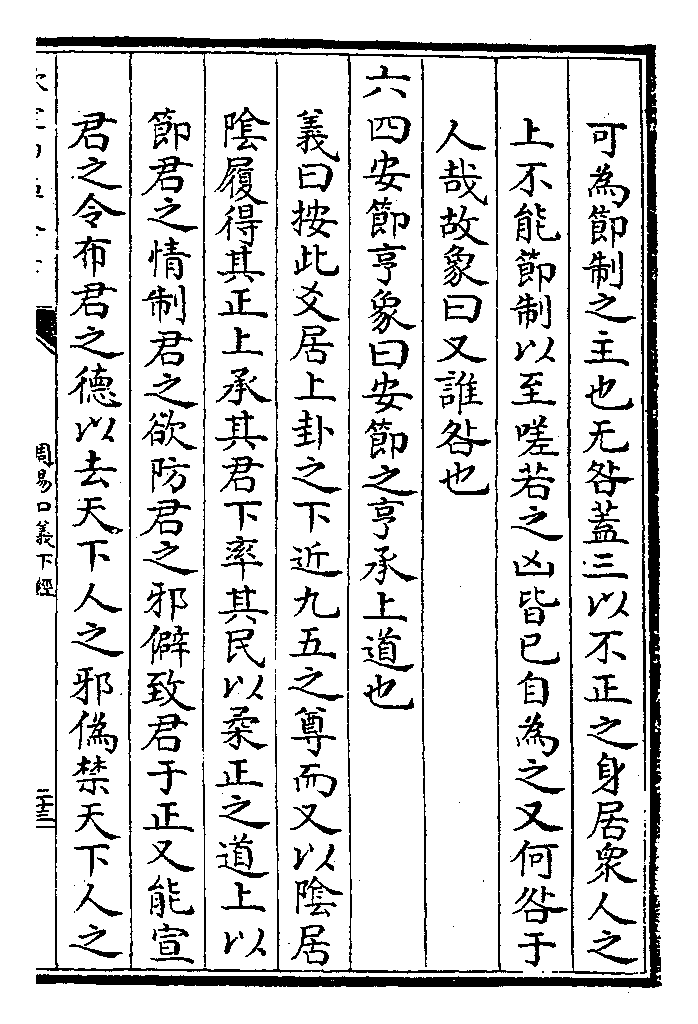 可為節制之主也无咎蓋三以不正之身居衆人之
上不能節制以至嗟若之凶皆已自為之又何咎于
人哉故象曰又誰咎也
六四安節亨象曰安節之亨承上道也
義曰按此爻居上卦之下近九五之尊而又以陰居
陰履得其正上承其君下率其民以柔正之道上以
節君之情制君之欲防君之邪僻致君于正又能宣
君之令布君之德以去天下人之邪偽禁天下人之
周易口義下經
二十三